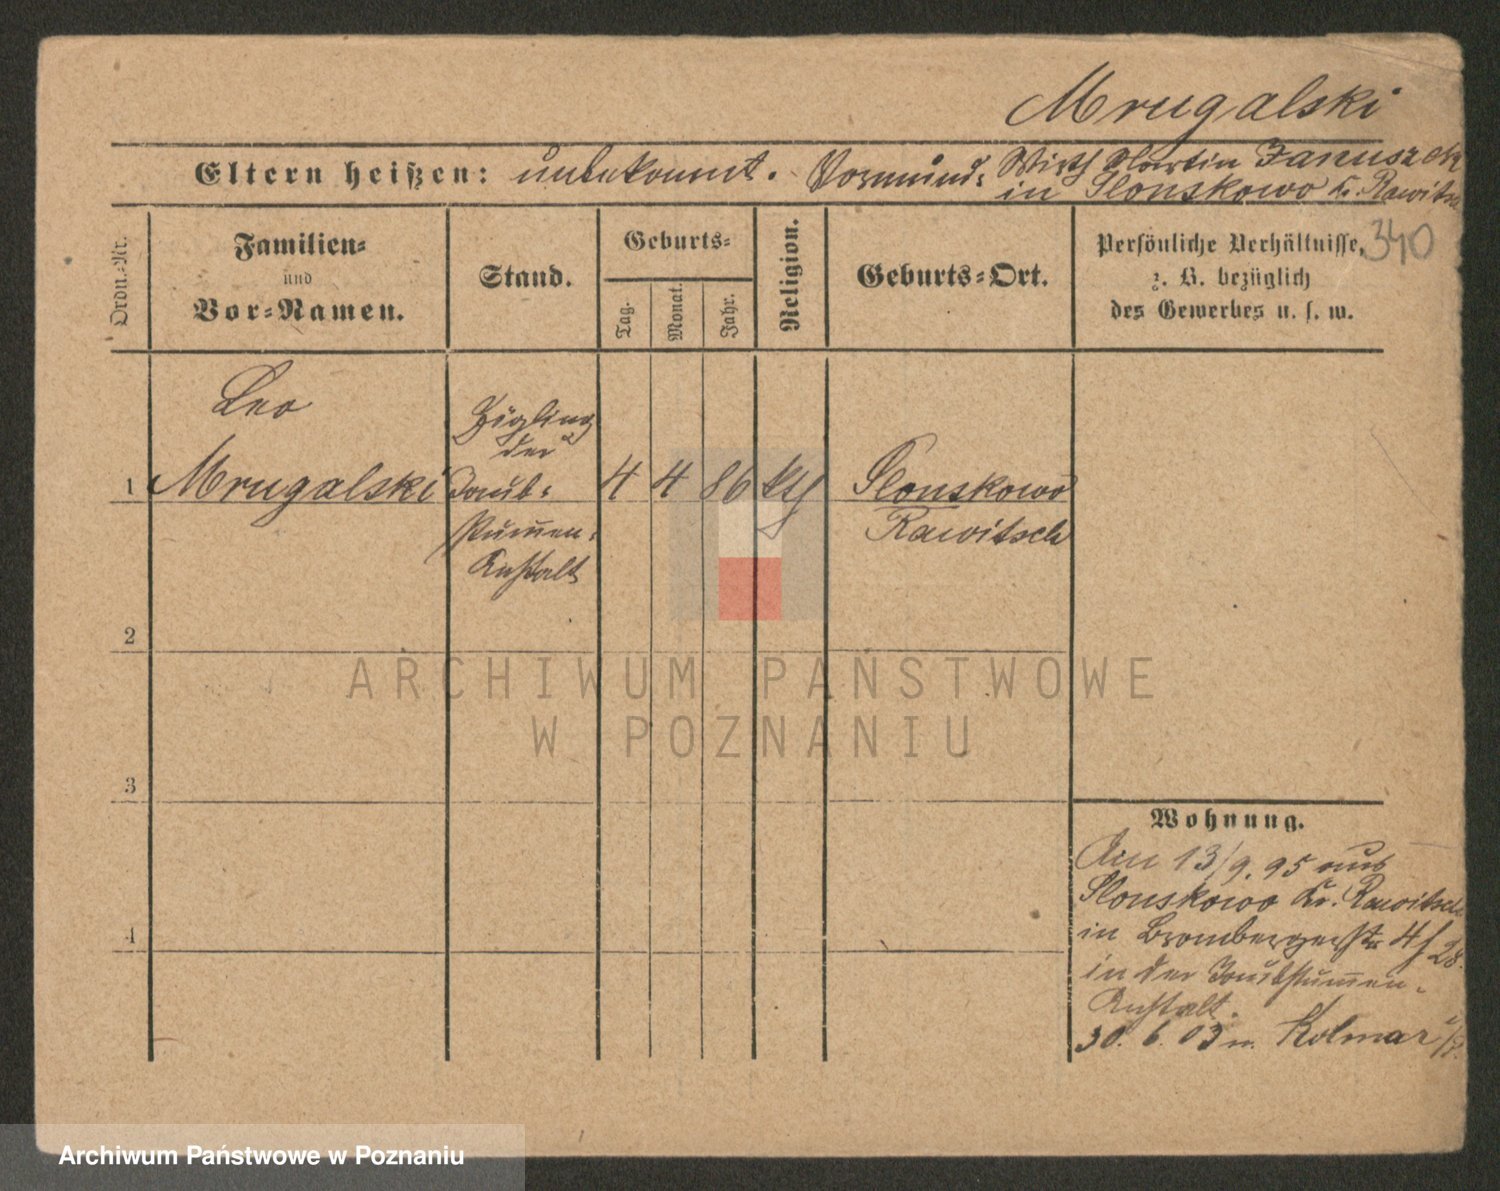 Mrugalski
Eltern heißen: unbekannt. Vormund: Wirth Martin Januszek
in Slonskowo Kr. Rawitsch
340
Ordn.-Nr.
Familien-
und
Vor-Namen.
Stand.
Geburts-
Tag.
Monat.
Jahr.
Religion.
Geburts-Ort.
Persönliche Verhältnisse,
z. B. bezüglich
des Gewerbes u. s. w.
Leo
1 Mrugalski
Zögling
der
Taub-
stummen-
Anstalt
4 4 86 kth
Slonskowo
Rawitsch
2
3
4
Wohnung.
Am 13/9. 95 aus
Slonskowo Kr. Rawitsch
in Brombergerstr 4/28.
in der Taubstummen-
Anstalt.
30. 6. 03 n. Kolmar i/P.
ARCHIWUM PAŃSTWOWE
W POZNANIU
Archiwum Państwowe w Poznaniu